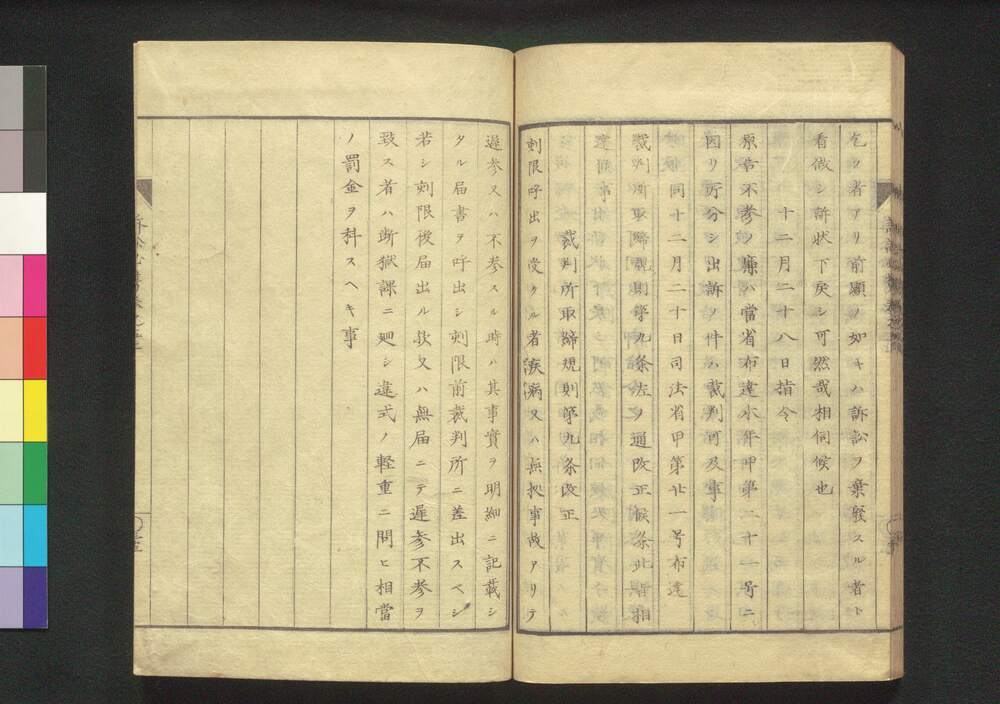 乞フ者アリ前顕ノ如キハ訴訟ヲ棄毀スル者ト
看做シ訴状下戻シ可然哉相伺候也
十二月二十八日指令
原告不参ノ廉ハ當省布達本年甲第二十一号ニ
因リ処分シ出訴ノ件ハ裁判可及事
同十二月二十日司法省甲第廿一号布達
裁判所取締規則第九条左ノ通改正候条此旨相
達候事
裁判所取締規則第九条改正
刻限呼出ヲ受クル者疾病又ハ無拠事故アリテ
遅参又ハ不参スル時ハ其事實ヲ明細ニ記載シ
タル届書ヲ呼出シ刻限前裁判所ニ差出スベシ
若シ刻限後届出ル歟又ハ無届ニテ遅参不参ヲ
致ス者ハ断獄課ニ廻シ違式ノ軽重ニ問ヒ相當
ノ罰金ヲ科スヘキ事